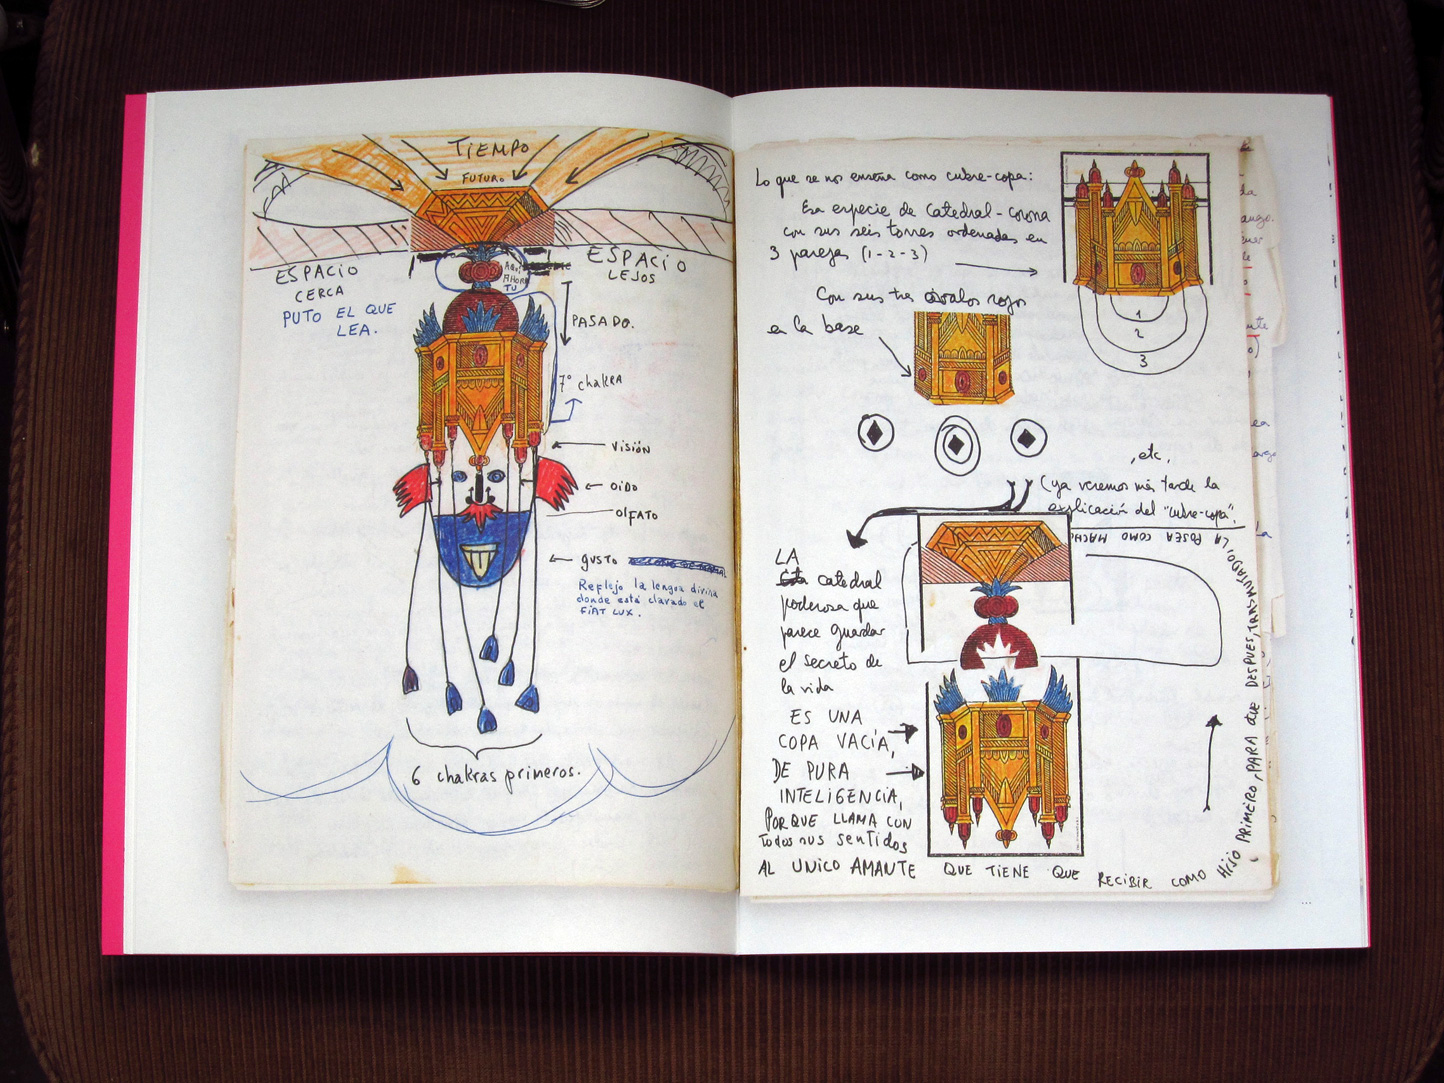 TIEMPO
FUTURO
ESPACIO
CERCA
PUTO EL QUE
LEA.
AQUÍ
AHORA
TU
ESPACIO
LEJOS
PASADO.
7º chakra
VISIÓN
OIDO
OLFATO
GUSTO
Reflejo la lengua divina
donde está clavado el
FIAT LUX.
6 chakras primeros.
Lo que se nos enseña como cubre-copa:
Esa especie de Catedral-corona
con sus seis torres ordenadas en
3 parejas (1-2-3)
1
2
3
Con sus tres óvalos rojos
en la base
, etc,
(ya veremos más tarde la
explicación del "cubre-copa".
LA
catedral
poderosa que
parece guardar
el secreto de
la vida
ES UNA
COPA VACÍA,
DE PURA
INTELIGENCIA,
PORQUE LLAMA CON
todos sus sentidos
AL UNICO AMANTE QUE TIENE QUE RECIBIR COMO HIJO PRIMERO, PARA QUE DESPUES, TRANSMUTADO,
LA POSEA COMO MACHO
...